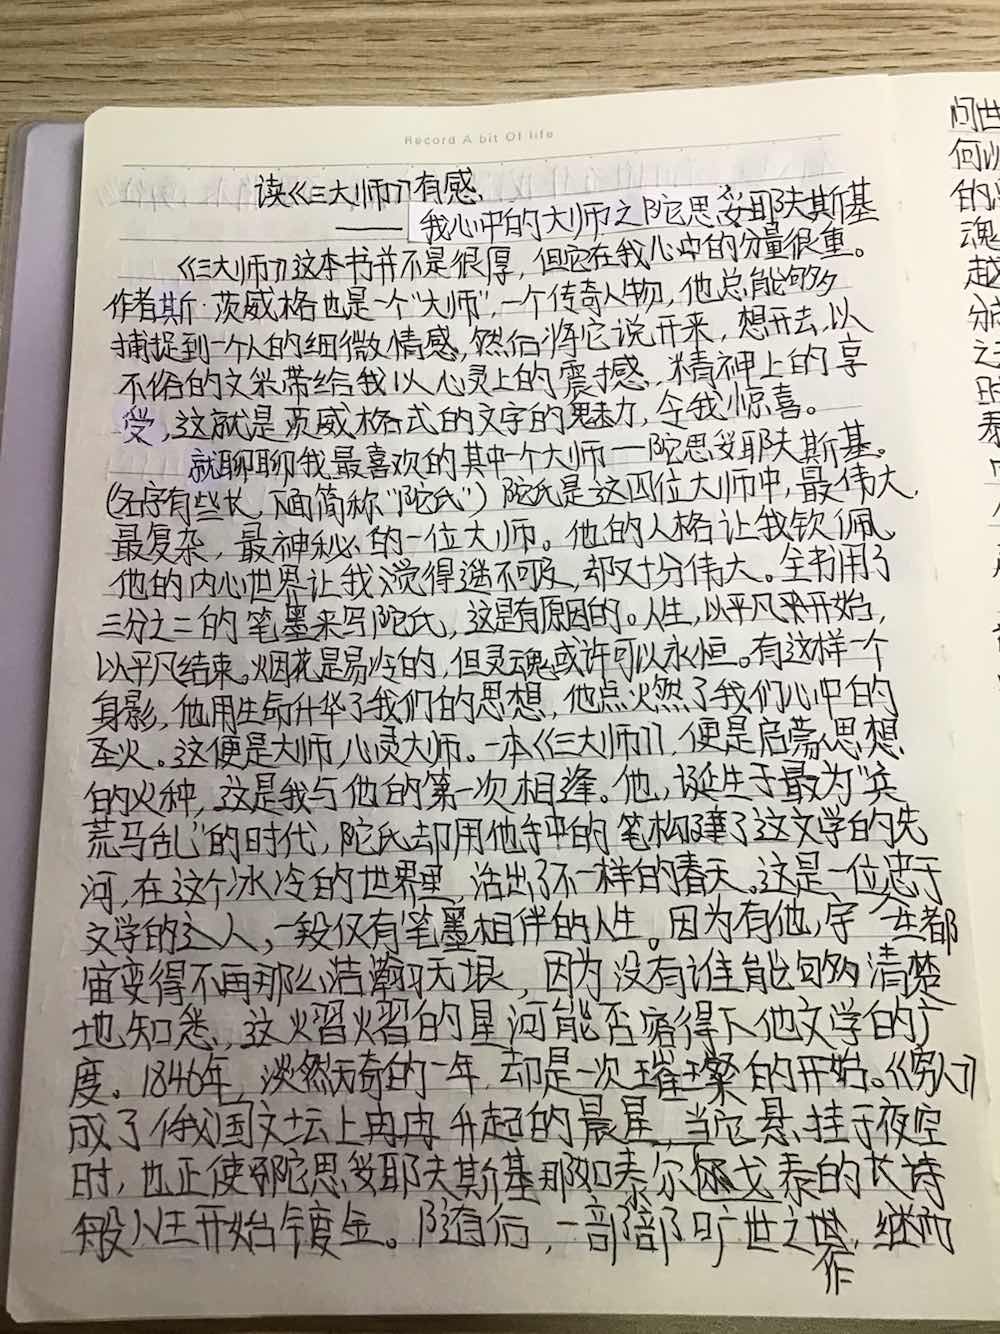 Record A bit Of life
读《三大师》有感
——我心中的大师之陀思妥耶夫斯基
《三大师》这本书并不是很厚，但它在我心中的分量很重。
作者斯·茨威格也是一个"大师"，一个传奇人物，他总能够
捕捉到一个人的细微情感，然后将它说开来，想开去，以
不俗的文笔带给我以心灵上的震撼，精神上的享
受，这就是茨威格式的文字的魅力，令我惊喜。
就聊聊我最喜欢的其中一个大师——陀思妥耶夫斯基。
（名字有些长，下面简称"陀氏"）陀氏是这四位大师中，最伟大，
最复杂，最神秘的一位大师。他的人格让我钦佩，
他的内心世界让我觉得遥不可及，却又十分伟大。全书用了
三分之二的笔墨来写陀氏，这是有原因的。人生，以平凡来开始，
以平凡结束。烟花是易冷的，但灵魂或许可以永恒。有这样一个
身影，他用生命升华了我们的思想，他点火燃了我们心中的
圣火。这便是大师，心灵大师。一本《三大师》，便是启蒙思想
的火种，这是我与他的第一次相逢。他，诞生于最为"兵
荒马乱"的时代，陀氏却用他手中的笔构建了这文学的先
河，在这个冰冷的世界里，活出了不一样的春天。这是一位忠于
文学的主人，一段仅有笔墨相伴的人生。因为有他，宇 生都
宙变得不再那么浩瀚无垠，因为没有谁能够清楚
地知悉，这熠熠的星河能否容得下他文学的广
度。1846年，淡然无奇的一年，却是一次璀璨的开始。《穷人》
成了俄国文坛上冉冉升起的晨星，当它悬挂于夜空
时，也正使那陀思妥耶夫斯基那如泰尔 戈泰的长诗
般人生开始镀金。随后，一部部旷世之作，继而
问世
何以
的
魂
越
之
时
泰